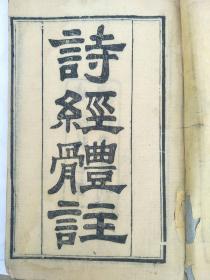 詩經體註